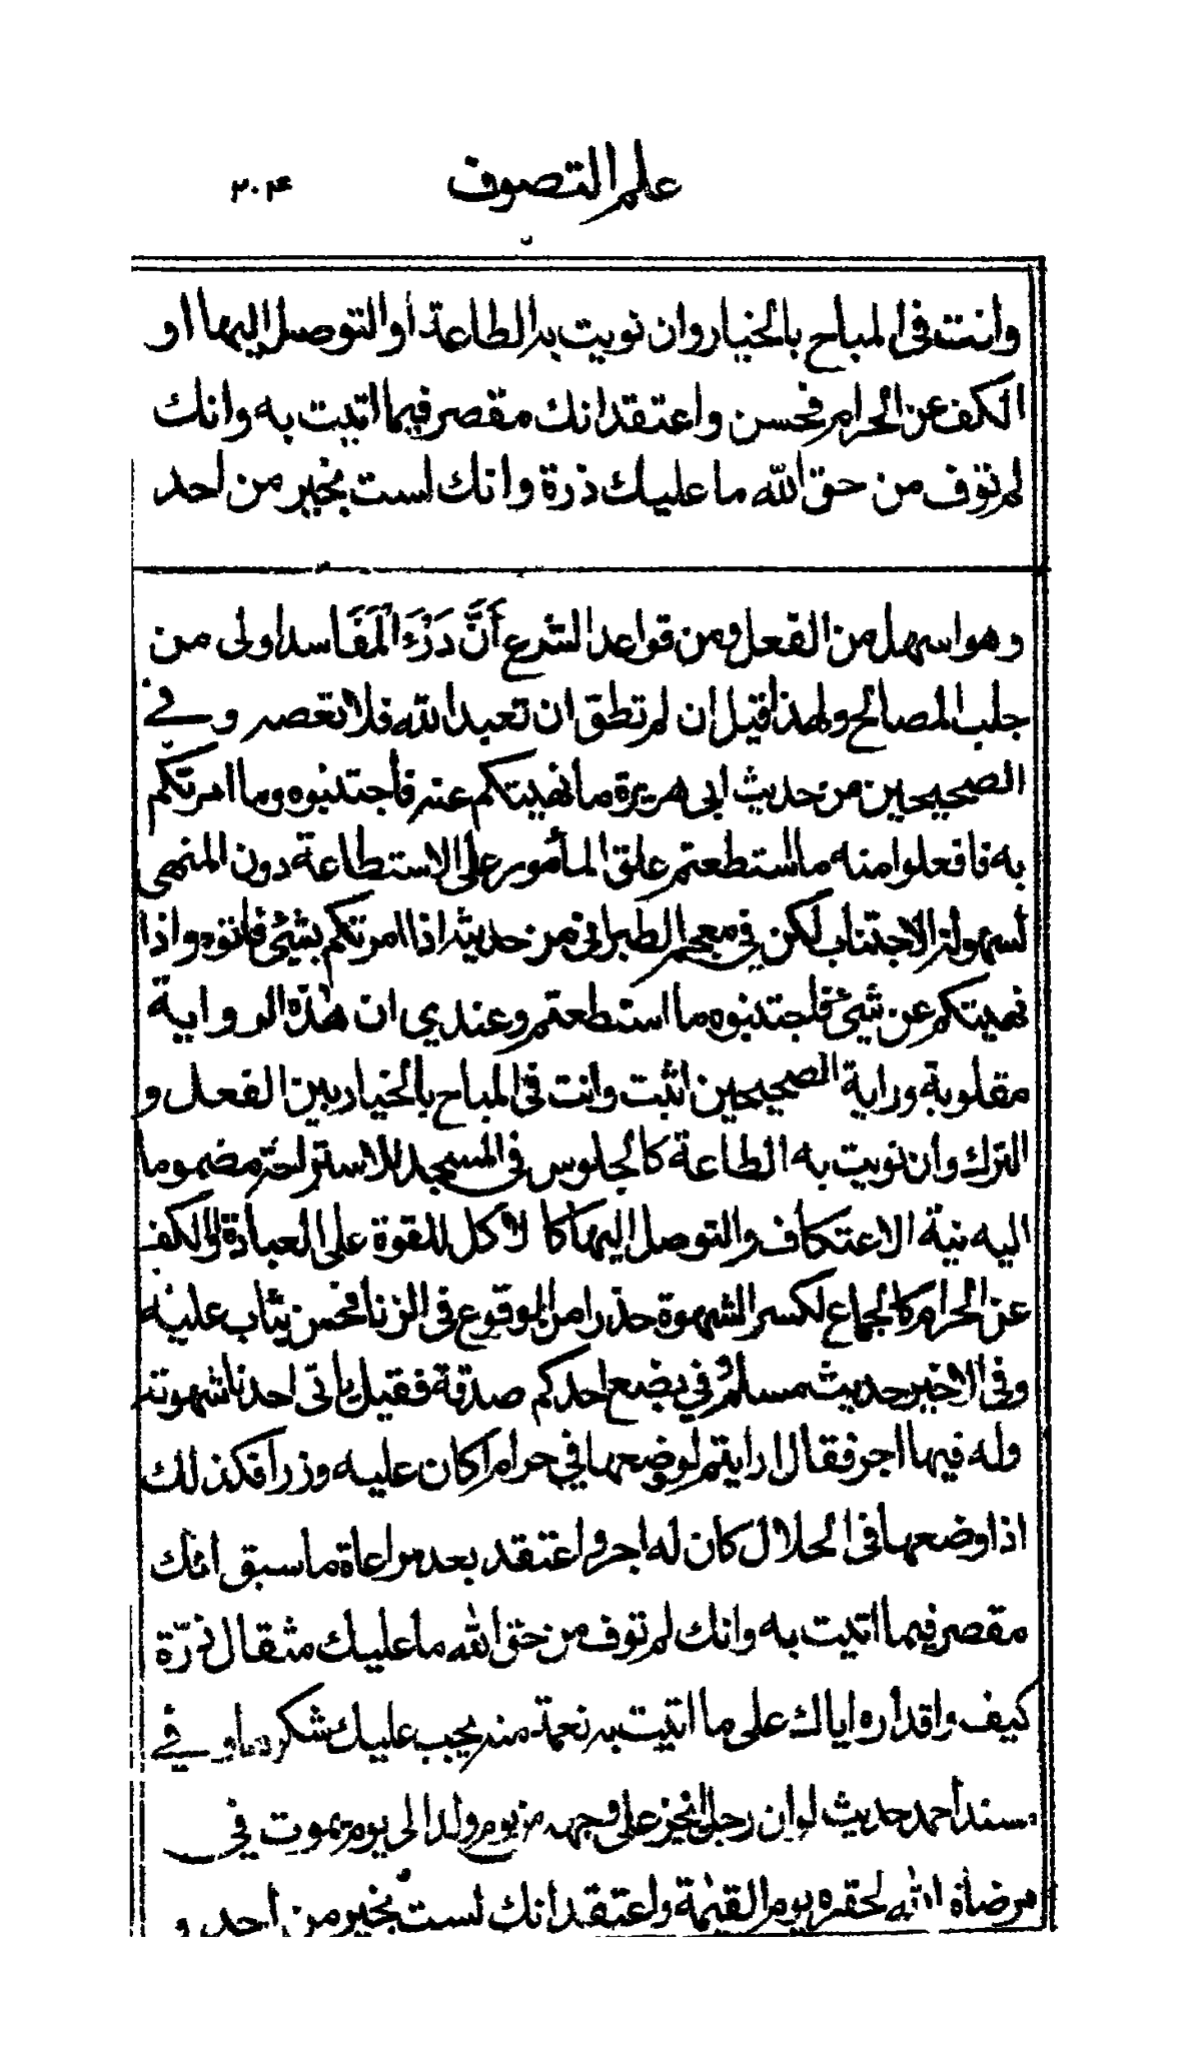 علم التصوف ٢٠٤
وانت في المباح بالخيار وان نويت به الطاعة او التوصل اليها او
الكف عن الحرام فحسن واعتقد انك مقصر فيما اتيت به وانك
لم توف من حق الله ما عليك ذرة وانك لست بخير من احد
وهو اسهل من الفعل ومن قواعد الشرع أَنَّ دَرْءَ الْمَفَاسد اولى من
جلب المصالح ولهذا قيل ان لم تطق ان تعبد الله فلا تعصه وفي
الصحيحين من حديث ابى هريرة ما نهيتكم عنه فأجتنبوه وما امرتكم
به فافعلوا منه ما استطعتم علق المأمور على الاستطاعة دون المنهى
لسهولة الاجتناب لكن في معجم الطبرانى من حديثه اذا امرتكم بشئ فاتوه واذا
نهيتكم عن شئ فاجتنبوه ما استطعتم وعندي ان هذه الرواية
مقلوبة وراية الصحيحين اثبت وانت في المباح بالخيار بين الفعل و
الترك وان نويت به الطاعة كالجلوس في المسجد للاستراحة مضموما
اليه نية الاعتكاف والتوصل اليها كا لاكل للقوة على العبادة والكف
عن الحرام كالجماع لكسر الشهوة حذرا من الوقوع في الزنا فحسن يثاب عليه
وفي الاخير حديث مسلم وفي بضع احدكم صدقة فقيل ياتى احدنا شهوته
وله فيها اجر فقال ارايتم لو وضعها في حرام اكان عليه وزر فكذلك
اذا وضعها في الحلال كان له اجر واعتقد بعد مراعاة ما سبق انك
مقصر فيما اتيت به وانك لم توف من حق الله ما عليك مثقال ذرّة
كيف واقداره اياك على ما اتيت به نعمة منه يجب عليك شكرها وفي
مسند أحمد حديث لو ان رجلا يخر على وجهه من يوم ولد الى يوم يموت في
مرضاة الله لحقره يوم القيمة واعتقد انك لست بخير من احد و